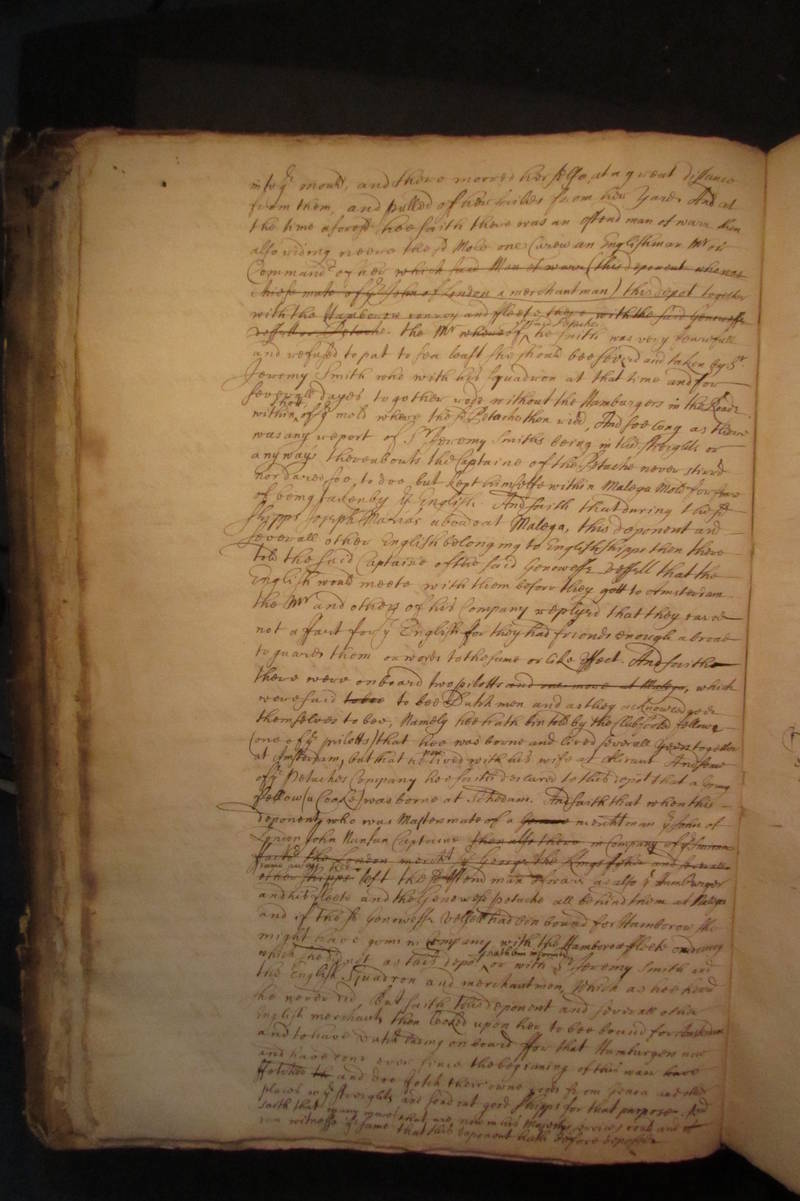 into ye mould, and there morred her selfe at a great distance
from them, and pulled of her sailes from her Yards And at
the time aforesd hee saith there was an Ostend man of warr then
also rideing neere the sd Mole one Carew an Englishman Mr or
Command of her which said Man of warr (this deponent when as
cheife mate of ye John of London a merchantman) this depot together
with the Hamborow convoy and fleete there with the said Genowesse
vessell or Petache. the Mr whereof he saith was very fearefull
and refused to put to sea least she should bee seized and taken by Sr
Jeremy Smith who with his Squadron at that time and for
severall dayes together rode without the Hamburgers in the Roade
within shott of ye mole where the sd Petache then rid, And soe long as there
was any report of Sr Jeremy Smiths being in the streights or
any ways thereabouts the Captaine of the Petache never stirrd
nor dared soe, to doe, but kept himselfe within Malega Mole for feare
of being taken by ye English. And saith that during the sd
shipps Joseph Marias aboad at Malega, this deponent and
severall other English belonging to English shipps then there
told the said Captaine of the said Genowesse vessell that the
English would meete with them before they gott to Amsterdam
the Mr and others of his Company replyed that they cared
not a fart for ye English for they had friends enough abroad
to guard them or words to the same or like effect. And saith
there were onboard two pilotts and one more at Malega, which
were said to bee Dutch men and as they acknowledged
themselves to bee, Namely hee hath bin told by the fellow
(one of ye pilotts) that hee was borne and lived severall yeares together
at Amsterdam, but that he lived with his wife at And some
of ye Petaches Company hee saith declared to this depot that a young
fellow (a Cooke) was borne at Schedam. And saith that when this
deponent who was Masters mate of a merchtman ye John of
London John Nunfan Captaine then also there in Company of ye
the London mercht ye George the Kings fisher and severall
other shipps left the sd Ostend man of warr as also ye Hamburger
and his fleete and the Genowese Petache all behind them at Malega
and if the sd Genowesse Vessell had bin bound for Hamborow she
might have gonn in Company with the Hamborow fleete
which he as this depot or with Sr Jeremy Smith and
the English Squadron and merchantmen, Which as hee
he never did But saith this deponent and severall other
English merchants then looked upon her to bee bound for Amsterdam
and to have Dutch onboard ffor that Hamburgers now
and have done ever since the beginning of this warr have
fetched and doe fetch their owne goods from Genoa and other
places in ye streights and send out good shipps for that purpose. And
saith that many now in his Majestys service and
can witnesse ye same that this deponent hath before deposed